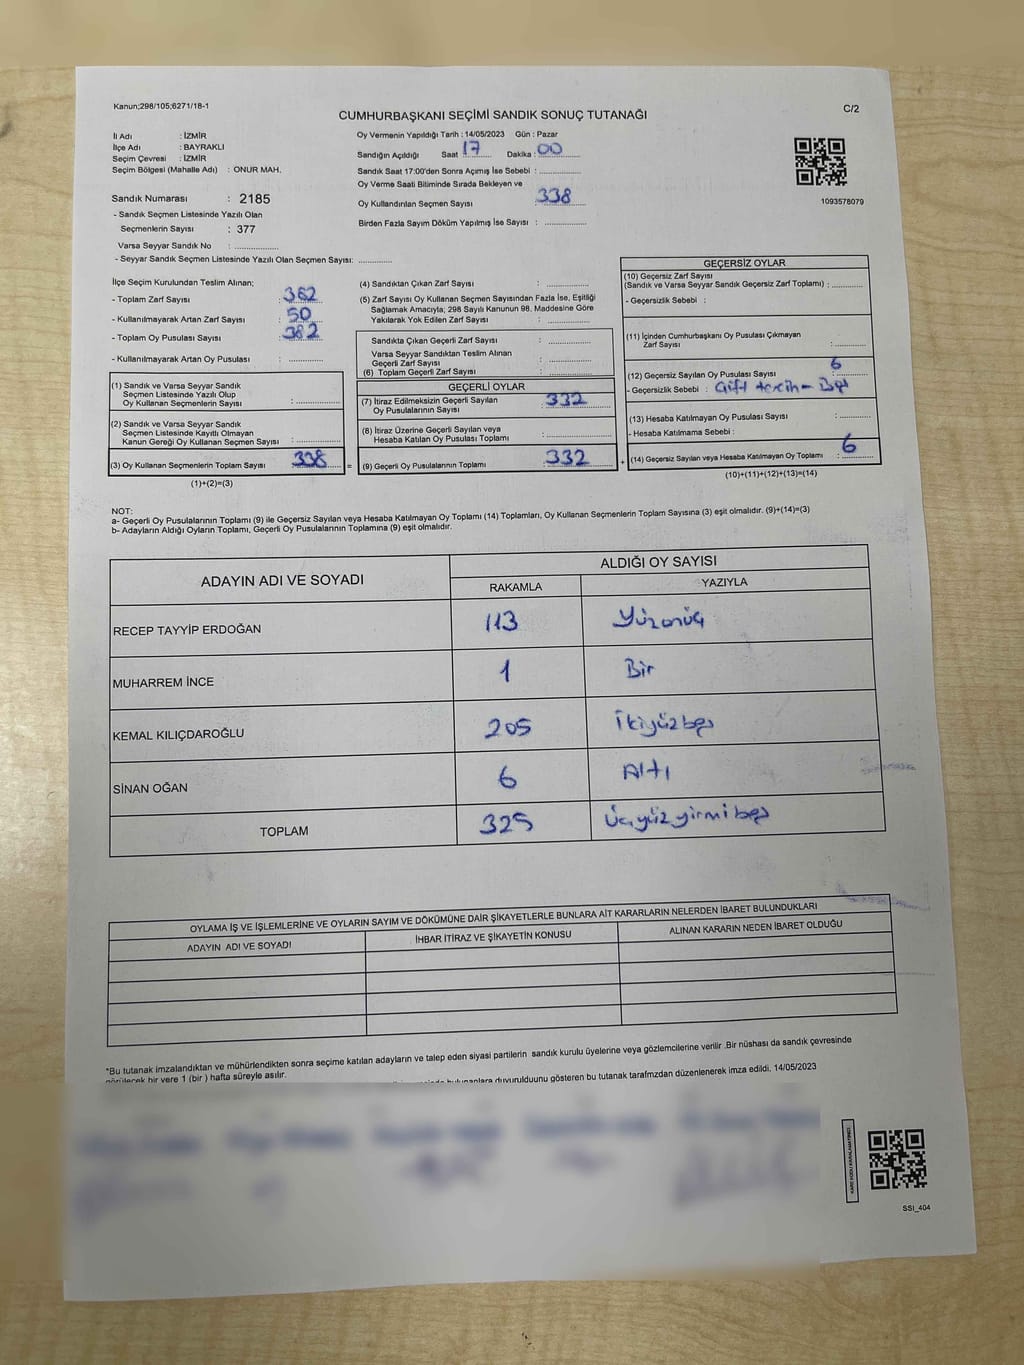 Kanun;298/105;6271/18-1
C/2
CUMHURBAŞKANI SEÇİMİ SANDIK SONUÇ TUTANAĞI
İl Adı : İZMİR
İlçe Adı : BAYRAKLI
Seçim Çevresi : İZMİR
Seçim Bölgesi (Mahalle Adı) : ONUR MAH.
Sandık Numarası : 2185
- Sandık Seçmen Listesinde Yazılı Olan
Seçmenlerin Sayısı : 377
Varsa Seyyar Sandık No : ..............
- Seyyar Sandık Seçmen Listesinde Yazılı Olan Seçmen Sayısı: ............
Oy Vermenin Yapıldığı Tarih : 14/05/2023 Gün : Pazar
Sandığın Açıldığı Saat 17 Dakika : 00
Sandık Saat 17:00'den Sonra Açımış İse Sebebi : ..............
Oy Verme Saati Bitiminde Sırada Bekleyen ve
Oy Kullandırılan Seçmen Sayısı : 338
Birden Fazla Sayım Döküm Yapılmış İse Sayısı : ..............
1093578079
İlçe Seçim Kurulundan Teslim Alınan;
- Toplam Zarf Sayısı : 382
- Kullanılmayarak Artan Zarf Sayısı : 50
- Toplam Oy Pusulası Sayısı : 382
- Kullanılmayarak Artan Oy Pusulası : ............
(1) Sandık ve Varsa Seyyar Sandık
Seçmen Listesinde Yazılı Olup
Oy Kullanan Seçmenlerin Sayısı : ..............
(2) Sandık ve Varsa Seyyar Sandık
Seçmen Listesinde Kayıtlı Olmayan
Kanun Gereği Oy Kullanan Seçmen Sayısı : ..............
(3) Oy Kullanan Seçmenlerin Toplam Sayısı 338
(1)+(2)=(3)
(4) Sandıktan Çıkan Zarf Sayısı : ..............
(5) Zarf Sayısı Oy Kullanan Seçmen Sayısından Fazla İse, Eşitliği
Sağlamak Amacıyla; 298 Sayılı Kanunun 98. Maddesine Göre
Yakılarak Yok Edilen Zarf Sayısı : ..............
Sandıkta Çıkan Geçerli Zarf Sayısı : ..............
Varsa Seyyar Sandıktan Teslim Alınan
Geçerli Zarf Sayısı : ..............
(6) Toplam Geçerli Zarf Sayısı : ..............
GEÇERLİ OYLAR
(7) İtiraz Edilmeksizin Geçerli Sayılan
Oy Pusulalarının Sayısı : 332
(8) İtiraz Üzerine Geçerli Sayılan veya
Hesaba Katılan Oy Pusulası Toplamı : ..............
= (9) Geçerli Oy Pusulalarının Toplamı 332
GEÇERSİZ OYLAR
(10) Geçersiz Zarf Sayısı
(Sandık ve Varsa Seyyar Sandık Geçersiz Zarf Toplamı) : ............
- Geçersizlik Sebebi :
(11) İçinden Cumhurbaşkanı Oy Pusulası Çıkmayan
Zarf Sayısı : ............
(12) Geçersiz Sayılan Oy Pusulası Sayısı : 6
- Geçersizlik Sebebi : Çift tercih - Boş
(13) Hesaba Katılmayan Oy Pusulası Sayısı : ............
- Hesaba Katılmama Sebebi :
+ (14) Geçersiz Sayılan veya Hesaba Katılmayan Oy Toplamı : 6
(10)+(11)+(12)+(13)=(14)
NOT:
a- Geçerli Oy Pusulalarının Toplamı (9) ile Geçersiz Sayılan veya Hesaba Katılmayan Oy Toplamı (14) Toplamları, Oy Kullanan Seçmenlerin Toplam Sayısına (3) eşit olmalıdır. (9)+(14)=(3)
b- Adayların Aldığı Oyların Toplamı, Geçerli Oy Pusulalarının Toplamına (9) eşit olmalıdır.
ADAYIN ADI VE SOYADI
ALDIĞI OY SAYISI
RAKAMLA YAZIYLA
RECEP TAYYİP ERDOĞAN 113 Yüzonüç
MUHARREM İNCE 1 Bir
KEMAL KILIÇDAROĞLU 205 İkiyüzbeş
SİNAN OĞAN 6 Altı
TOPLAM 325 Üçyüzyirmibeş
OYLAMA İŞ VE İŞLEMLERİNE VE OYLARIN SAYIM VE DÖKÜMÜNE DAİR ŞİKAYETLERLE BUNLARA AİT KARARLARIN NELERDEN İBARET BULUNDUKLARI
ADAYIN ADI VE SOYADI İHBAR İTİRAZ VE ŞİKAYETİN KONUSU ALINAN KARARIN NEDEN İBARET OLDUĞU
*Bu tutanak imzalandıktan ve mühürlendikten sonra seçime katılan adayların ve talep eden siyasi partilerin sandık kurulu üyelerine veya gözlemcilerine verilir .Bir nüshası da sandık çevresinde
görülecek bir yere 1 (bir ) hafta süreyle asılır.
duyurulduunu gösteren bu tutanak tarafmzdan düzenlenerek imza edildi. 14/05/2023
SSI_404